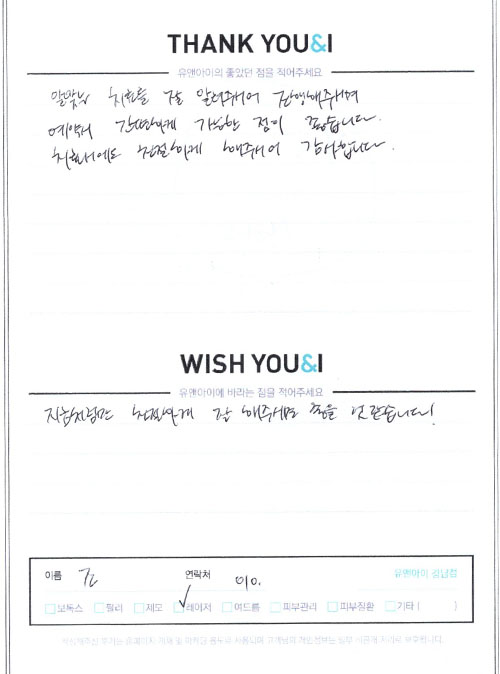 THANK YOU&I
유앤아이의 좋았던 점을 적어주세요
알맞는 치료를 잘 알려주어 진행해주시며
예약시 간편하게 가능한 점이 좋습니다.
치료시에도 친절하게 해주시어 감사합니다.
WISH YOU&I
유앤아이에 바라는 점을 적어주세요
지금처럼만 친절하게 잘 해주시면 좋을 것 같습니다!
이름 연락처 010. 유앤아이 강남점
보톡스 필러 제모 레이저 여드름 피부관리 피부질환 기타 ( )